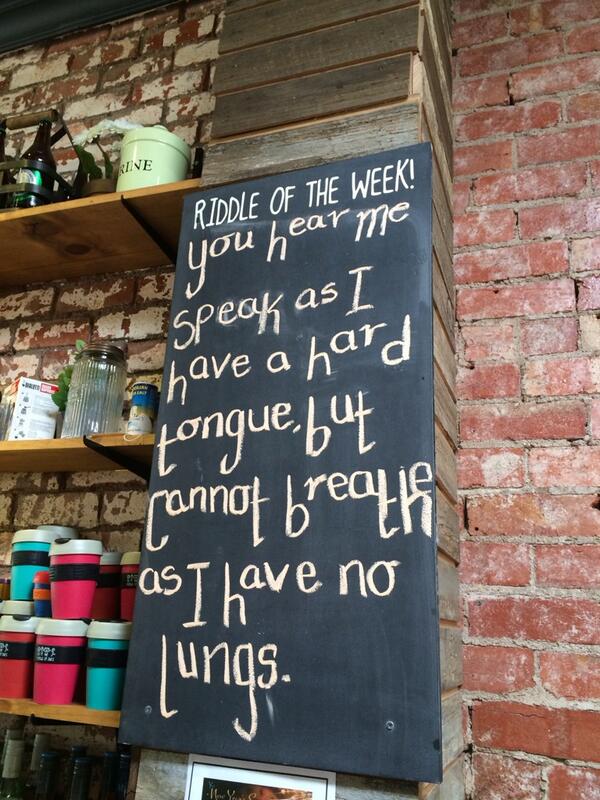 RINE
RIDDLE OF THE WEEK!
you hear me
speak as I
have a hard
tongue, but
cannot breathe
as I have no
lungs.